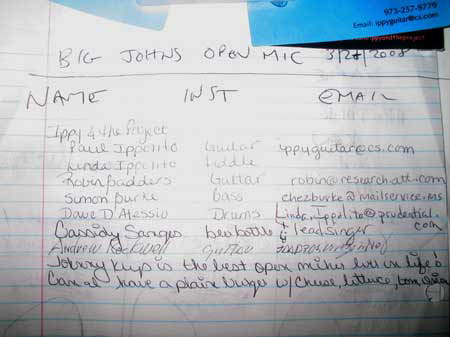 973-257-9779
Email: ippyguitar@cs.com
ippyandtheproject
BIG JOHNS OPEN MIC 3/28/2008
NAME INST EMAIL
Ippy & the Project
Paul Ippolito Guitar ippyguitar@cs.com
Linda Ippolito Fiddle
Robin Guitar robin@research.att.com
Simon Burke bass chezburke@mailservice.ms
Dave D'Alessio Drums Linda.Ippolito@prudential.com
Cassidy beer bottle & lead singer
Andrew Rockwell guitar
Johnny is the best open in life
Can a have a plain burger w/ Cheese, lettuce, tom, onion